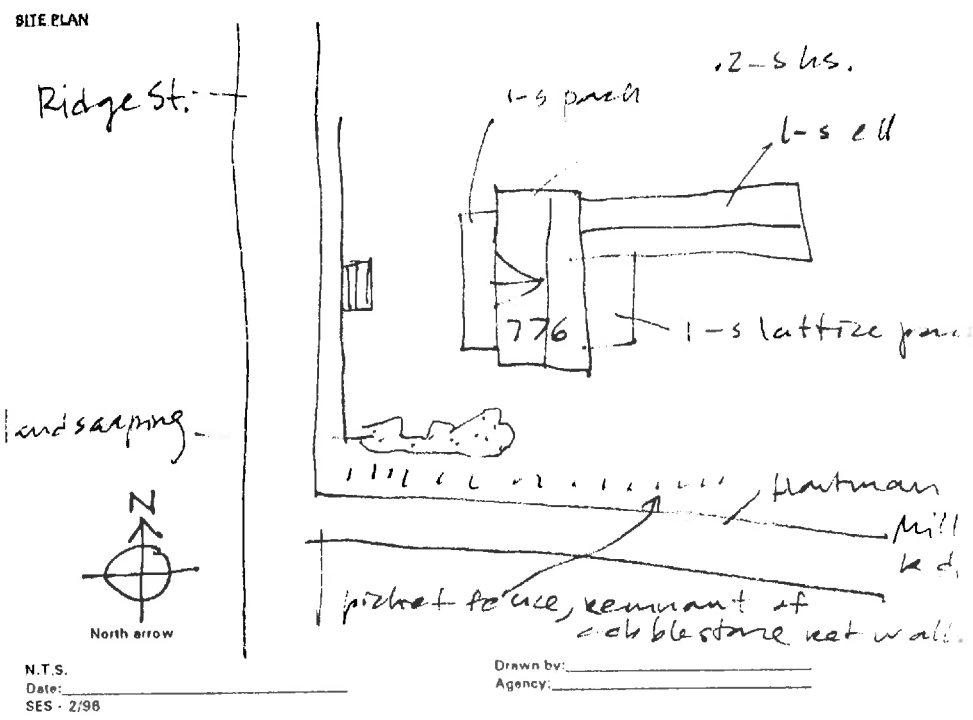 SITE PLAN
Ridge St.
.2-s hs.
1-s porch
1-s ell
776
1-s lattice
landscaping
N
Hartman
Mill
Rd.
picket fence, remnant of
cobblestone ret wall.
North arrow
N.T.S.
Date:
SES - 2/98
Drawn by:
Agency: